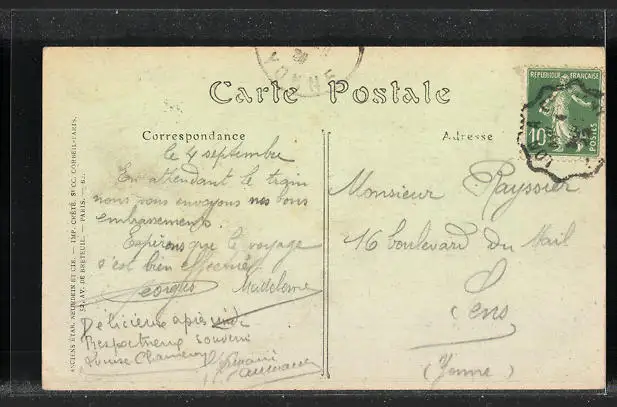 YONNE
Carte Postale
RÉPUBLIQUE FRANÇAISE
10
POSTES
Correspondance
Adresse
le 4 septembre
En attendant le train
nous vous envoyons nos bons
embrassements.
Espérons que le voyage
s'est bien effectué
Georges Madeleine
Délicieuse après
Respectueux souvenir
Louise
Monsieur Rayssier
16 boulevard du Mail
Sens
(Yonne)
ANCIENS ÉTAB. NEURDEIN ET CIE. — IMP. CRÉTÉ, SUCC. CORBEIL-PARIS.
52, AV. DE BRETEUIL. — PARIS.